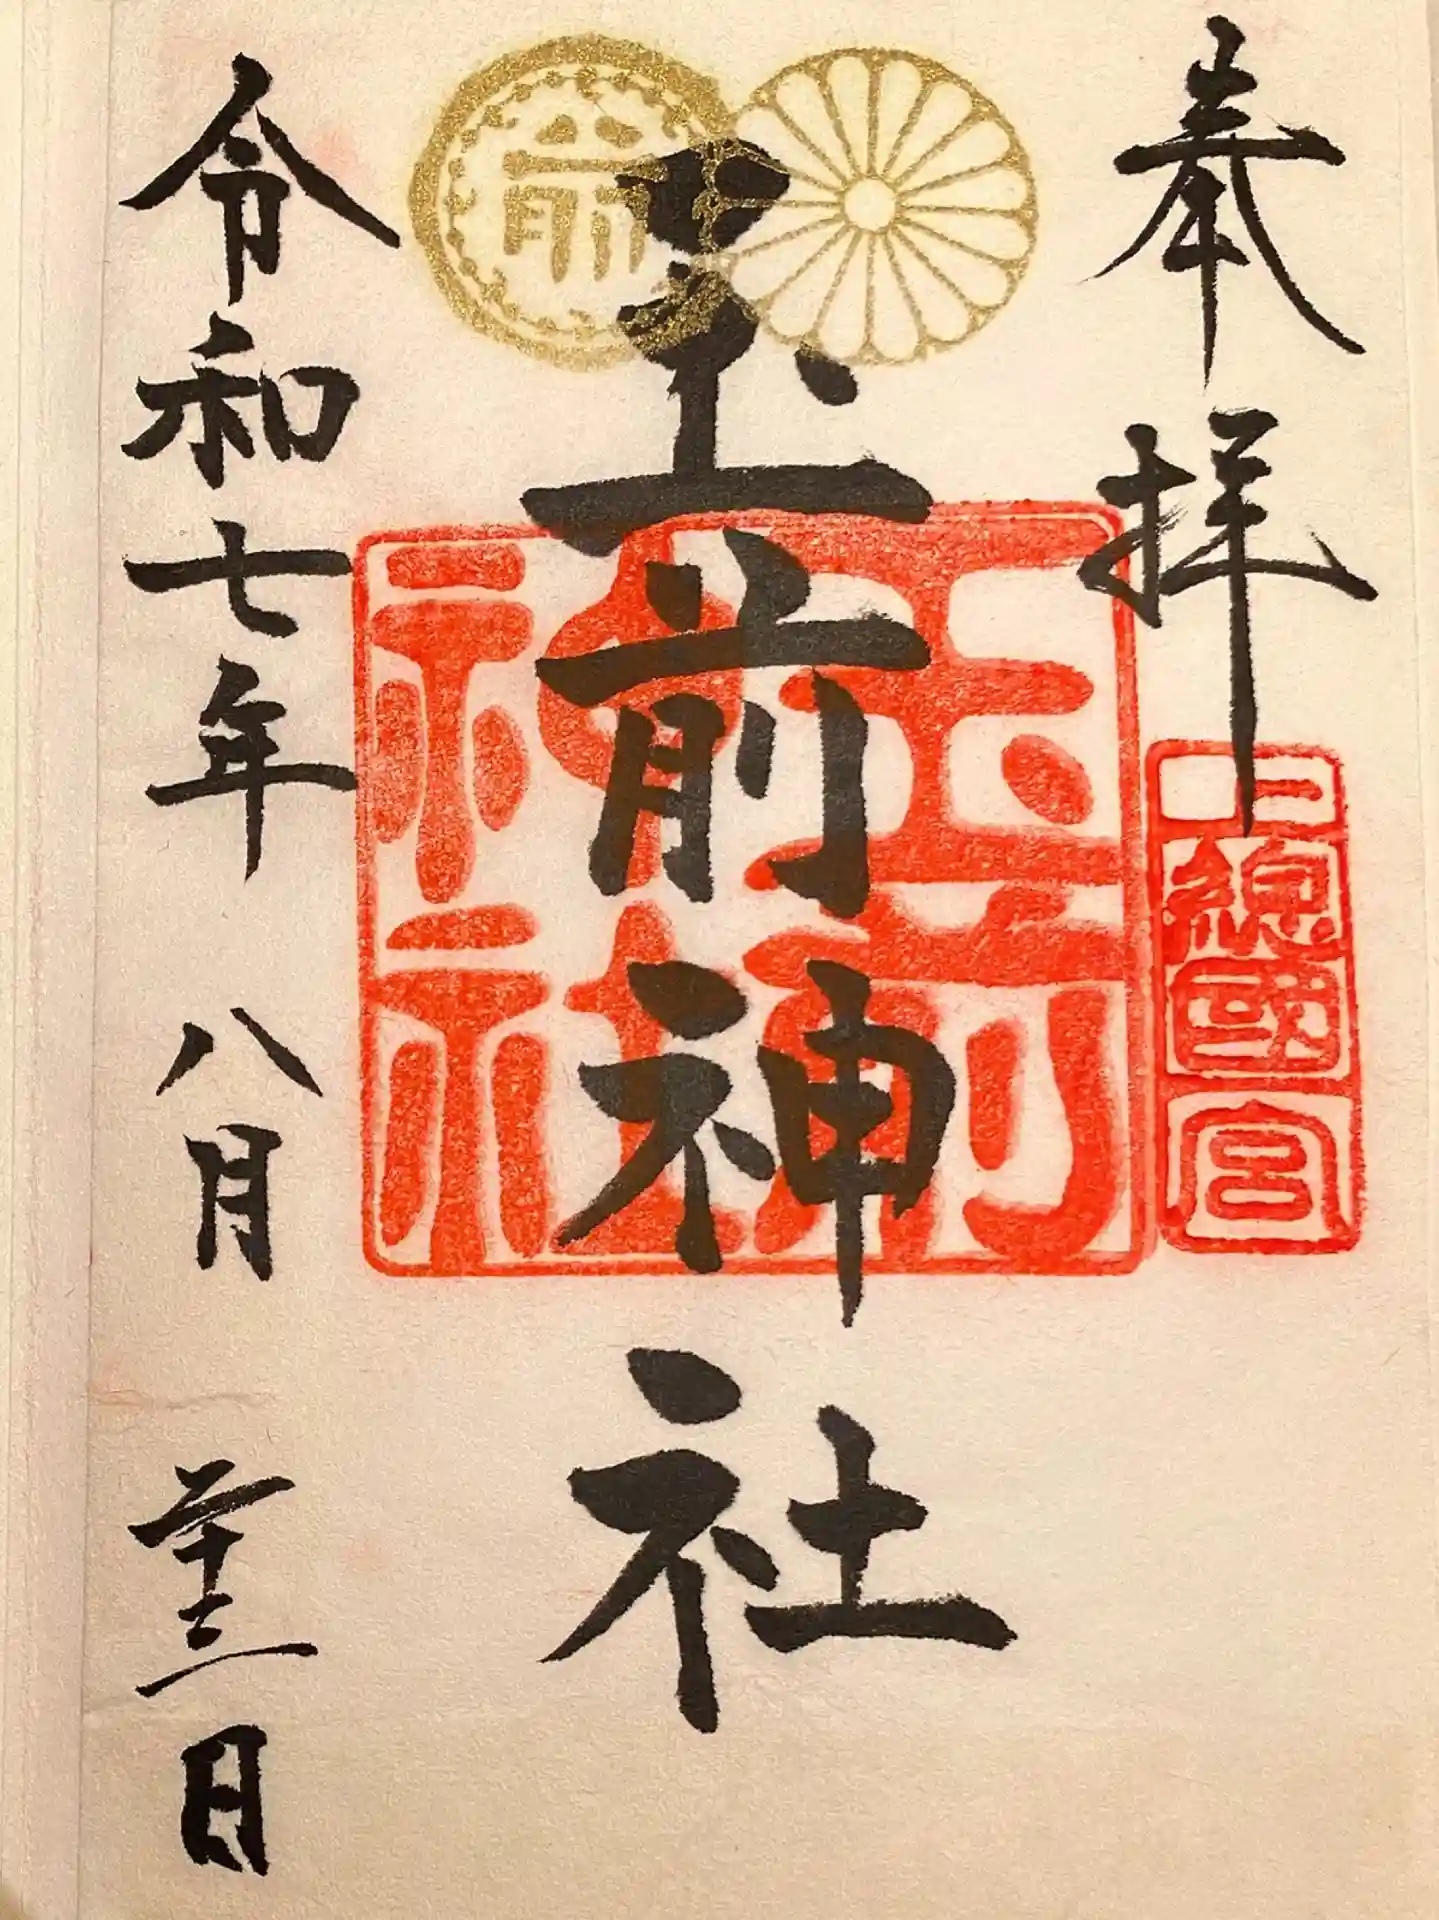 奉拝
上總國一宮
前
玉前神社
玉前神社
令和七年八月二十三日